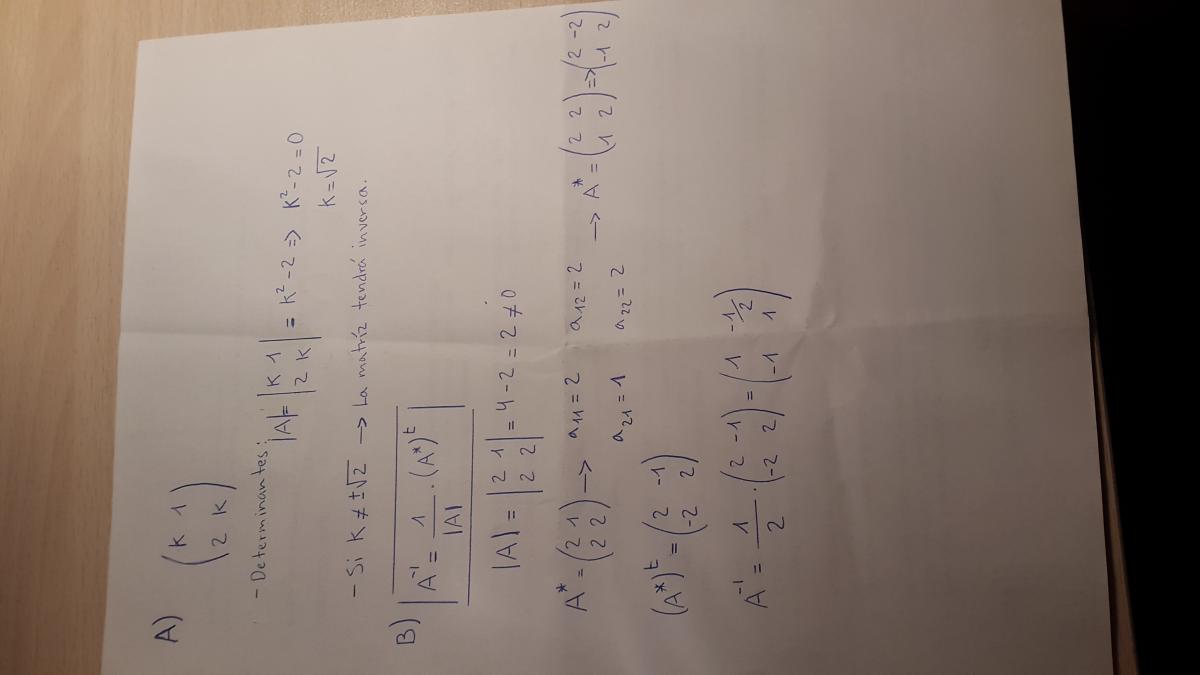 A)
(K 1
2 K)
- Determinantes:
|A|= |K 1
2 K| = K² - 2 => K² - 2 = 0
K = √2
- Si K ≠ ±√2 → La matríz tendrá inversa.
B) A⁻¹ = 1/|A| · (A*)ᵗ
|A| = |2 1
2 2| = 4 - 2 = 2 ≠ 0
A* = (2 1
2 2) → a₁₁ = 2 a₁₂ = 2
a₂₁ = 1 a₂₂ = 2 → A* = (2 2
1 2) => (2 -2
-1 2)
(A*)ᵗ = (2 -1
-2 2)
A⁻¹ = 1/2 · (2 -1
-2 2) = (1 -1/2
-1 1)